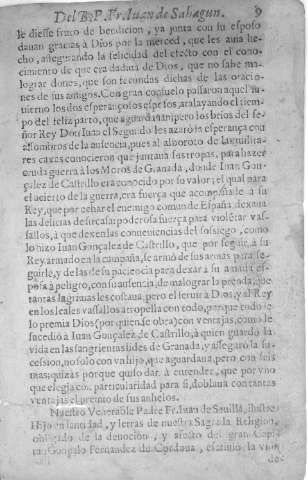 Del B. P. Fr. Iuan de Sahagun. 9
le diesse fruto de bendicion, ya junta con su esposo
dauan gracias à Dios por la merced, que les auia he-
cho, assegurando la felicidad del efecto con el cono-
cimiento de que era dadiua de Dios, que no sabe ma-
lograr dones, que son fecundas dichas de las oracio-
nes de sus amigos. Con gran consuelo passaron aquel in-
uierno los dos esperançosos esposos, atalayando el tiem-
po del feliz parto, que aguardauan; pero los brios del se-
ñor Rey Don Iuan el Segundo les azarò la esperança con
assombros de la ausencia, pues al alboroto de las milita-
res caxas conocieron que juntaua sus tropas, para hazer
cruda guerra à los Moros de Granada, donde Iuan Gon-
çalez de Castrillo era conocido por su valor; el qual para
el acierto de la guerra, era fuerça que acompañasse à su
Rey, que por echar el enemigo comun de España, dexaua
las delicias de su real
poderosa fuerça para violentar vas-
sallos, à que dexen las conueniencias del sossiego, como
lo hizo Iuan Gonçalez de Castrillo, que por seguir à su
Rey armado en la campaña, se armò de sus armas para se-
guirle, y de las de su paciencia para dexar à su amada espo-
sa à peligro, con su ausencia, de malograr la prenda, que
tantas lagrimas les costaua, pero el seruir à Dios, y al Rey
en los leales vassallos atropella con todo, porque todo se
lo premia Dios (por quien se obra) con ventajas, como le
sucediò à Iuan Gonçalez de Castrillo, à quien guardò la
vida en las sangrientas lides de Granada, y assegurò la su-
cession, no solo con vn hijo, que aguardaua, pero con seis
mas, quizas porque quiso dar à entender, que por vno
que elegia con particularidad para si, doblaua con tantas
ventajas el premio de sus anhelos.
Nuestro Venerable Padre Fr. Iuan de Seuilla, illustre
Hijo en santidad, y letras de nuestra Sagrada Religion,
obligado de la deuocion, y afecto del gran Capi-
tan Gonçalo Fernandez de Cordoua, escriuiò la vida